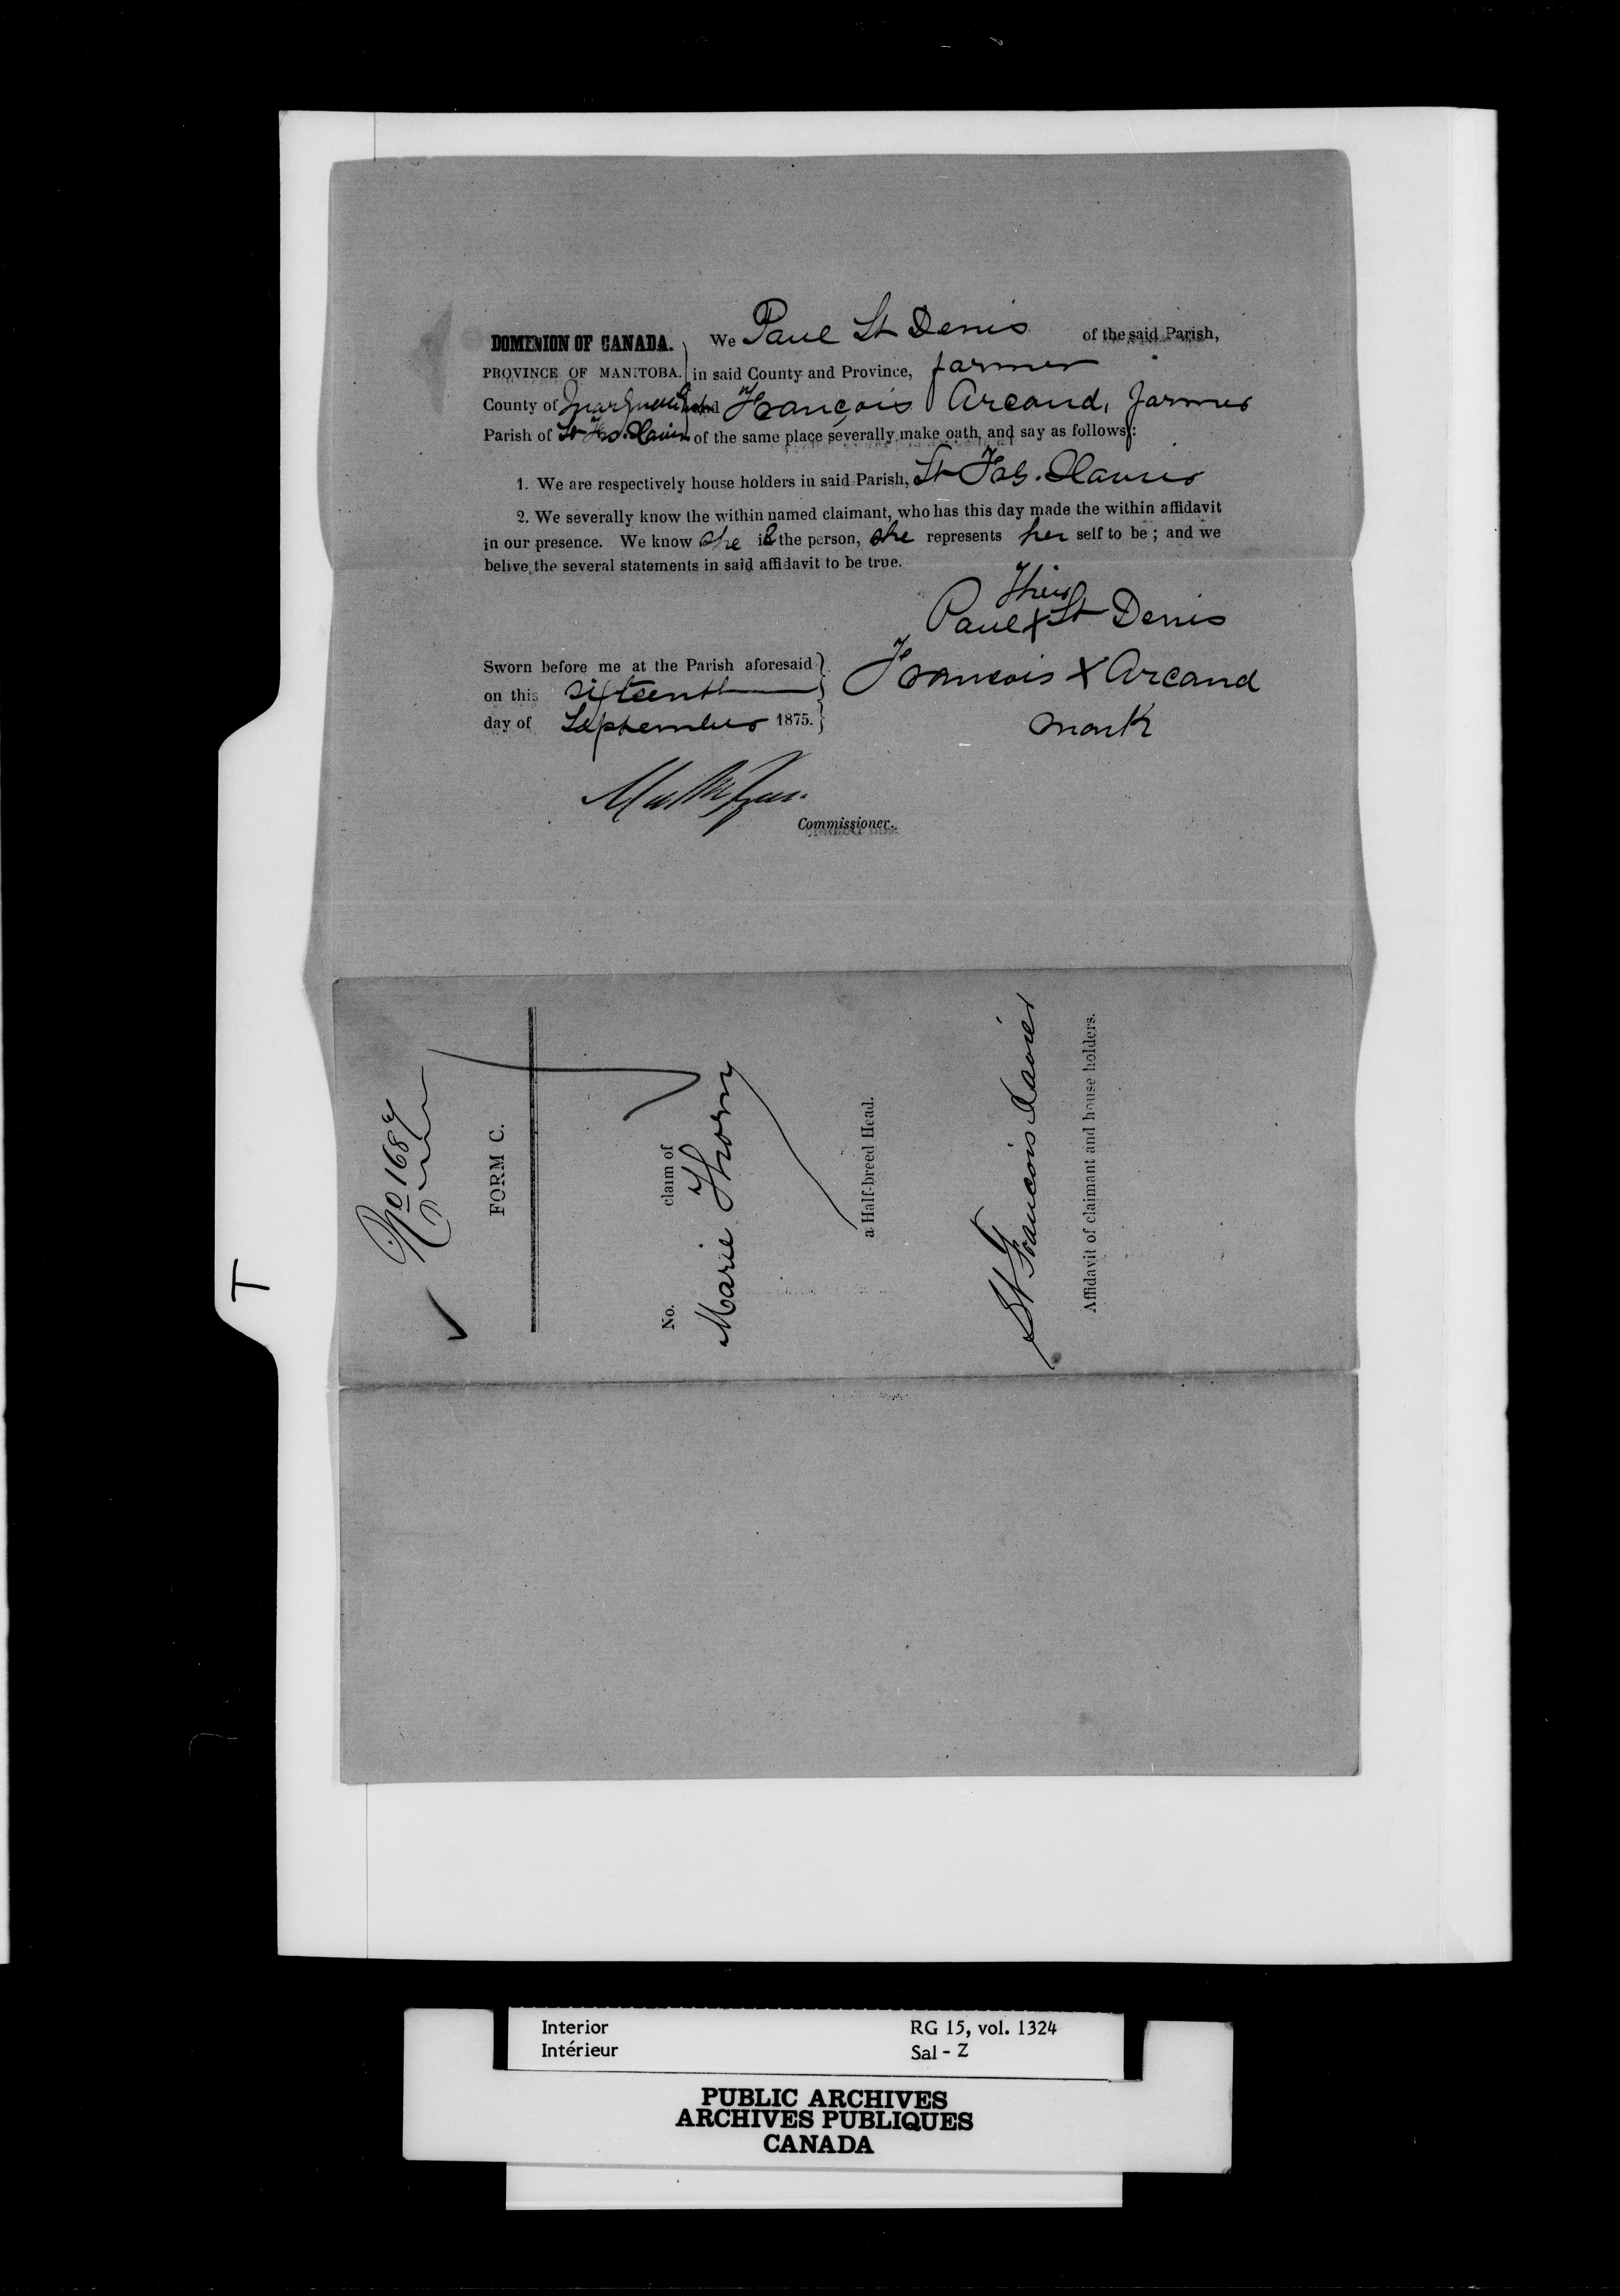 DOMINION OF CANADA. We Paul St Denis of the said Parish,
PROVINCE OF MANITOBA. in said County and Province, farmer
County of Marquette and François Arcand, farmer
Parish of St Frs. Xavier of the same place severally make oath and say as follows:
1. We are respectively house holders in said Parish, St Frs. Xavier
2. We severally know the within named claimant, who has this day made the within affidavit
in our presence. We know she is the person, she represents her self to be; and we
belive the several statements in said affidavit to be true.
Their
Paul X St Denis
Sworn before me at the Parish aforesaid
François X Arcand
on this sixteenth
day of September 1875.
mark
Commissioner.
No 1687
FORM C.
No. claim of
Marie Thorn
a Half-breed Head.
St Francois Xavier
Affidavit of claimant and house holders.
T
Interior RG 15, vol. 1324
Intérieur Sal - Z
PUBLIC ARCHIVES
ARCHIVES PUBLIQUES
CANADA